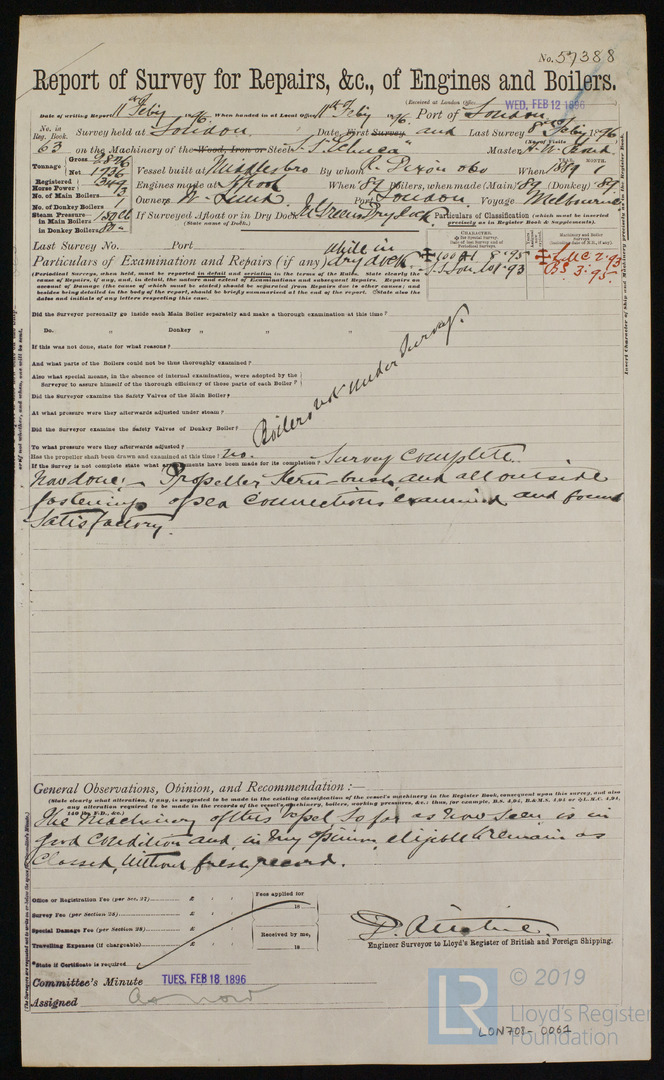 No. 57388
Report of Survey for Repairs, &c., of Engines and Boilers.
(Received at London Office WED. FEB 12 1896
Date of writing Report 11th Feby 1896. When handed in at Local Office 11th Feby 1896. Port of London
No. in Reg. Book. Survey held at London Date, First Survey and Last Survey 8th Feby 1896
(No. of Visits
63 on the Machinery of the Wood, Iron or Steel S.S. Master H. W.
Tonnage Gross 2876 Net 1736 Vessel built at Middlesbro By whom R. Dixon & Co When 1889 1
YEAR. MONTH.
Registered Horse Power Engines made at When 89 Boilers, when made (Main) 89 (Donkey) 89.
No. of Main Boilers Owners W. Lund Port London. Voyage Melbourne
No. of Donkey Boilers 1
Steam Pressure in Main Boilers If Surveyed Afloat or in Dry Dock Dry Dock.
in Donkey Boilers (State name of Dock.)
Particulars of Classification (which must be inserted precisely as in Register Book & Supplements).
Last Survey No. Port
Particulars of Examination and Repairs (if any) while in dry dock
100 A1
L.M.C 2.93
B.S 3.95.
(Periodical Surveys, when held, must be reported in detail and seriatim in the terms of the Rules. State clearly the
cause of Repairs, if any, and, in detail, the nature and extent of Examinations and subsequent Repairs. Repairs on
account of Damage (the cause of which must be stated) should be separated from Repairs due to other causes; and
besides being detailed in the body of the report, should be briefly summarised at the end of the report. State also the
dates and initials of any letters respecting this case.
Did the Surveyor personally go inside each Main Boiler separately and make a thorough examination at this time?
Do. " Donkey " " " "
If this was not done, state for what reasons?
And what parts of the Boilers could not be thus thoroughly examined?
Also what special means, in the absence of internal examination, were adopted by the
Surveyor to assure himself of the thorough efficiency of those parts of each Boiler?
Did the Surveyor examine the Safety Valves of the Main Boiler?
At what pressure were they afterwards adjusted under steam?
Did the Surveyor examine the Safety Valves of Donkey Boiler?
To what pressure were they afterwards adjusted?
Boilers not under survey.
Has the propeller shaft been drawn and examined at this time? no.
If the Survey is not complete state what arrangements have been made for its completion? Survey complete
Now done:- Propeller stern-bush and all outside
fastenings of sea connections examined and found
satisfactory.
General Observations, Opinion, and Recommendation:—
(State clearly what alteration, if any, is suggested to be made in the existing classification of the vessel's machinery in the Register Book, consequent upon this survey, and also
any alteration required to be made in the records of the vessel's machinery, boilers, working pressures, &c.: thus, for example, B.S. 4,94, B.&M.S. 4,94 or L.M.C. 4,94,
140 lbs, F.D., &c.)
The Machinery of this Vessel so far as now seen is in
good condition and, in my opinion, eligible to remain as
Classed, without fresh record.
Office or Registration Fee (per Sec. 27) £ : :
Survey Fee (per Section 28) £ : :
Special Damage Fee (per Section 28) £ : :
Travelling Expenses (if chargeable) £ : :
Fees applied for
18
Received by me,
18
*State if Certificate is required
Engineer Surveyor to Lloyd's Register of British and Foreign Shipping.
Committee's Minute TUES. FEB 18 1896
Assigned as now
LR © 2019
Lloyd's Register
Foundation
LON708-0061